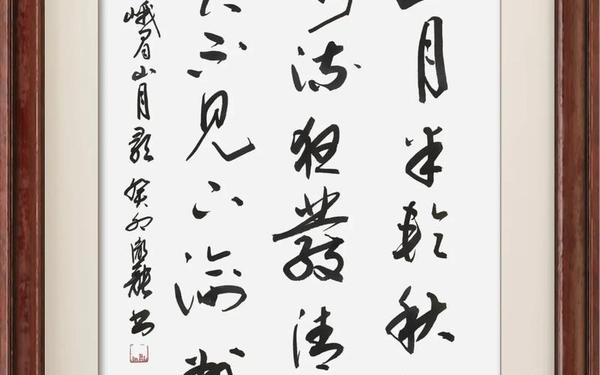 山月半輪秋
流夜發清
不見下渝州
峨眉山月歌 癸卯 書